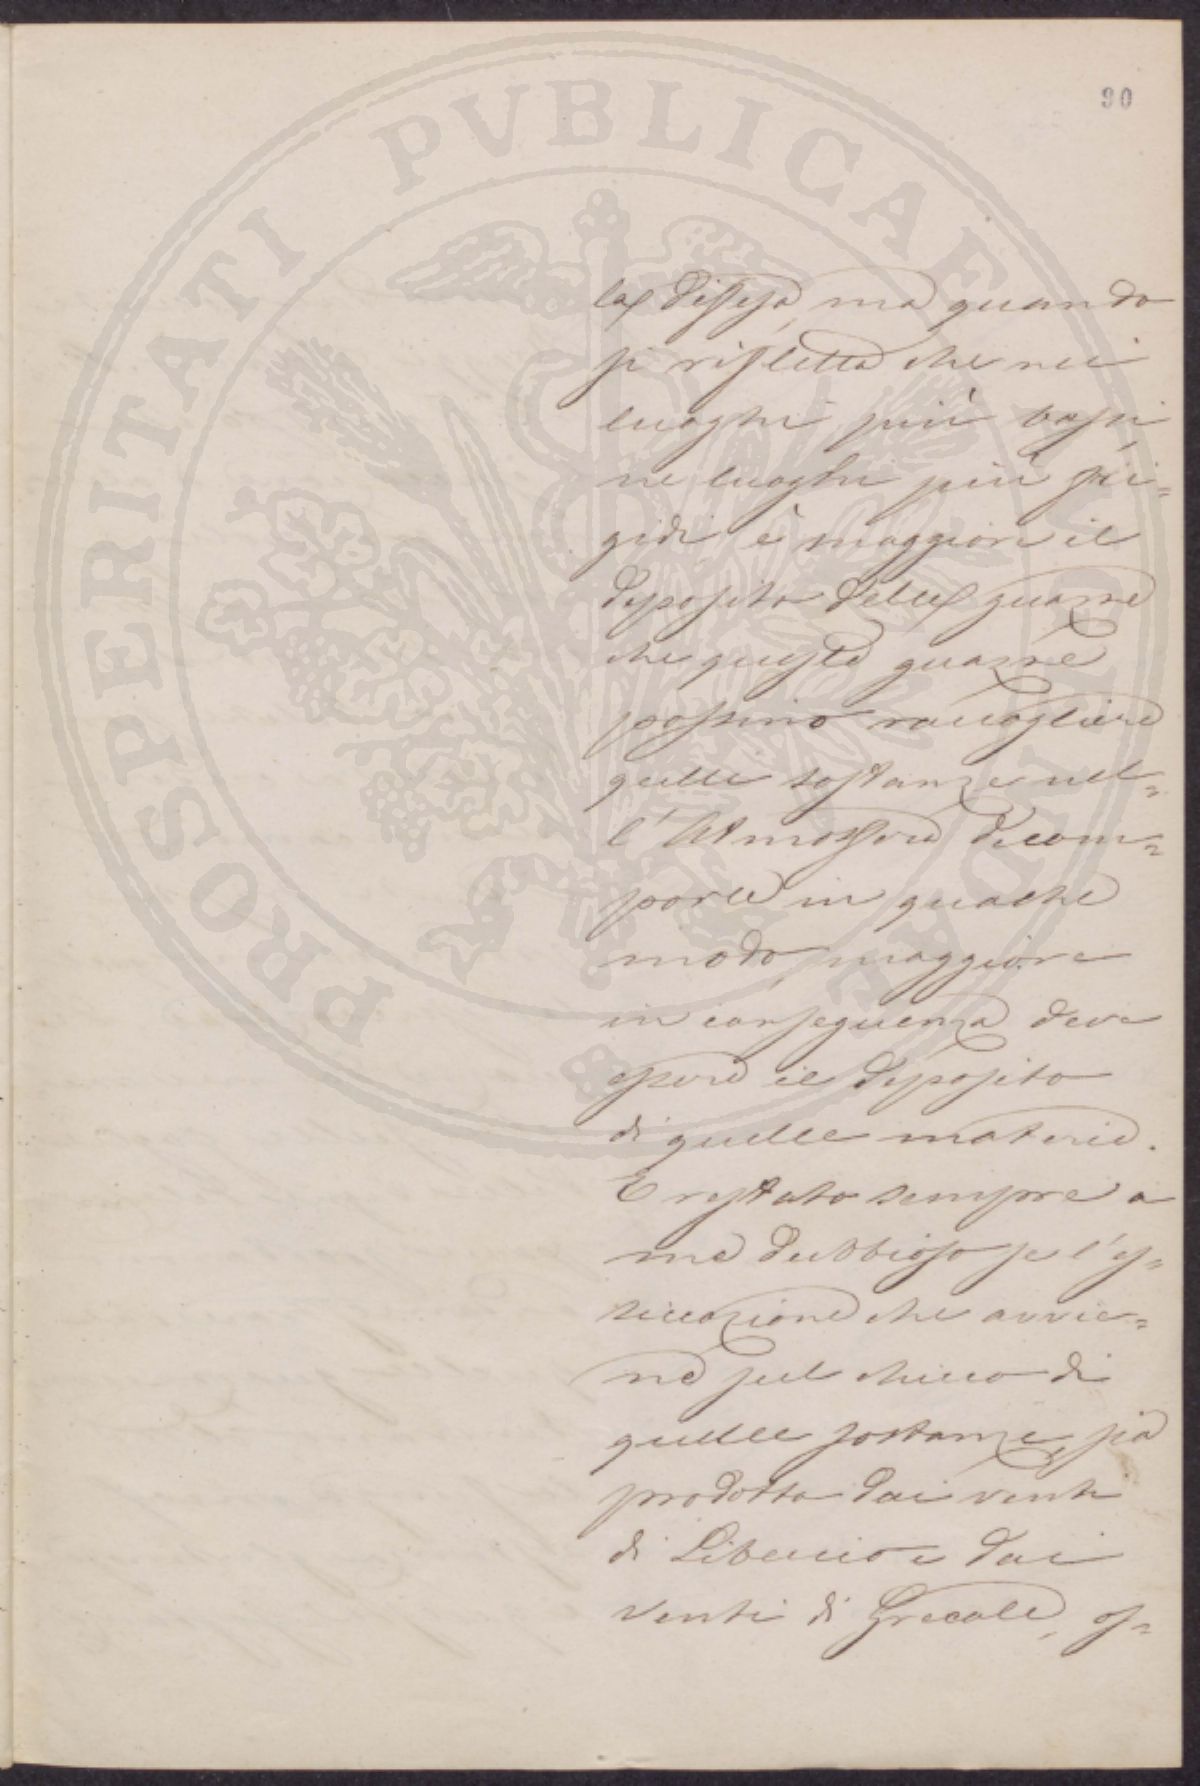 90
PROSPERITATI PVBLICAE AVGENDAE
la difesa, ma quando
si rifletta che nei
luoghi più bassi,
ne luoghi più fri=
gidi è maggiore il
deposito delle guazze
che queste guazze
possino raccogliere
quelle sostanze nel=
l'Atmosfera decom=
porle in qualche
modo, maggiore
in conseguenza deve
essere il deposito
di quelle materie.
E restato sempre a
me dubbioso se l'es=
siccazione che avvie=
ne sul chicco di
quelle sostanze, sia
prodotta dai venti
di Libeccio e dai
venti di Grecale, os=